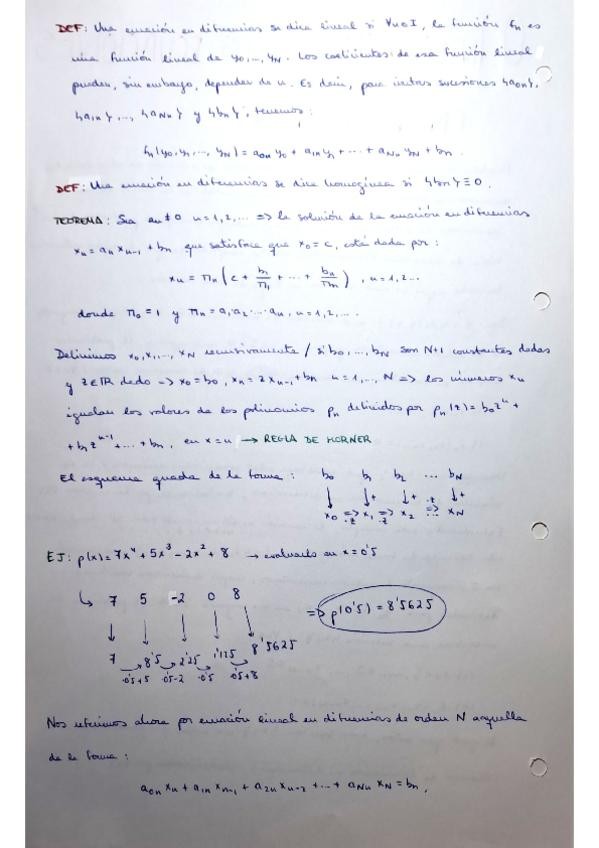 DEF: Una ecuación en diferencias se dice lineal si ∀n∈I, la función fn es
una función lineal de y0,..., yN. Los coeficientes de esa función lineal
pueden, sin embargo, depender de n. Es decir, para ciertas sucesiones {a0n},
{a1n},..., {aNn} y {bn}, tenemos:
fn(y0, y1, ..., yN) = a0n y0 + a1n y1 + ... + aNn yN + bn.
DEF: Una ecuación en diferencias se dice homogénea si {bn} ≡ 0.
TEOREMA: Sea an ≠ 0 n=1,2,... => la solución de la ecuación en diferencias
xn = an xn-1 + bn que satisface que x0 = c, está dada por:
xn = πn (c + b1/π1 + ... + bn/πn), n=1,2...
donde π0 = 1 y πn = a1 a2 ... an, n=1,2,...
Definimos x0, x1, ..., xN recursivamente / si b0, ..., bN son N+1 constantes dadas
y z∈IR dado => x0 = b0, xn = z xn-1 + bn n=1, ..., N => los números xn
igualan los valores de los polinomios pn definidos por pn(z) = b0 z^n +
+ b1 z^n-1 + ... + bn, en x=n → REGLA DE HORNER
El esquema queda de la forma: b0 b1 b2 ... bN
↓ ↓+ ↓+ ·z ↓+
x0 => x1 => x2 => xN
·z ·z ...
EJ: p(x) = 7x^4 + 5x^3 - 2x^2 + 8 → evaluado en x=0'5
↳ 7 5 -2 0 8
=> p(0'5) = 8'5625
7 8'5 2'25 1'125 8'5625
·0'5+5 ·0'5-2 ·0'5 ·0'5+8
Nos referimos ahora por ecuación lineal en diferencias de orden N aquella
de la forma:
a0n xn + a1n xn-1 + a2n xn-2 + ... + aNn xN = bn,